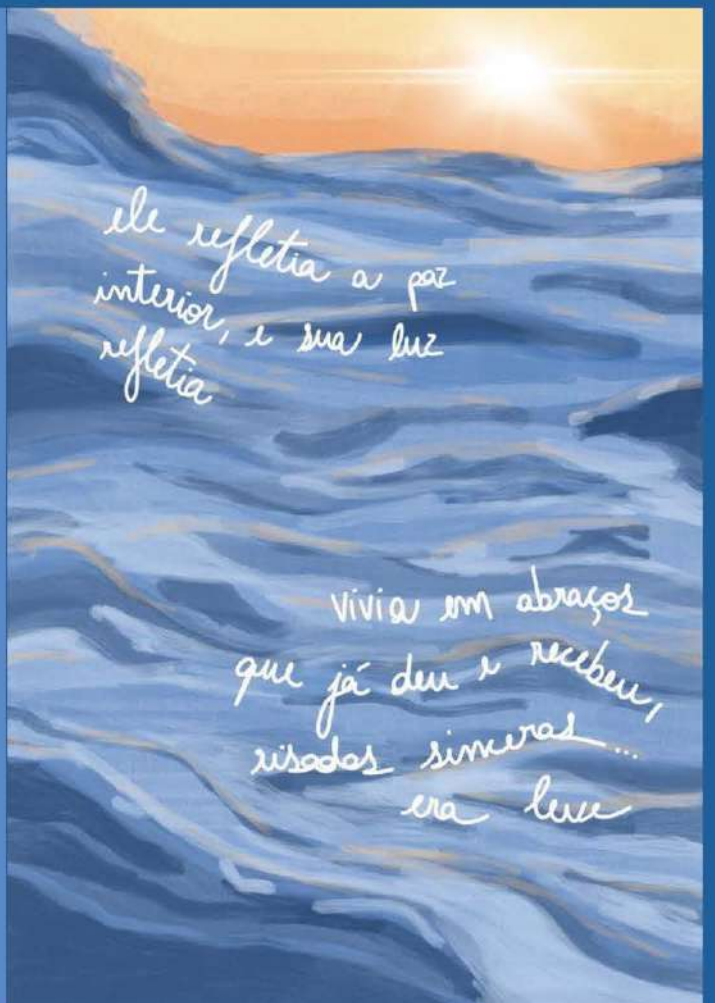 ele refletia a paz
interior, e sua luz
refletia
vivia em abraços
que já deu e recebeu,
risadas sinceras...
era leve